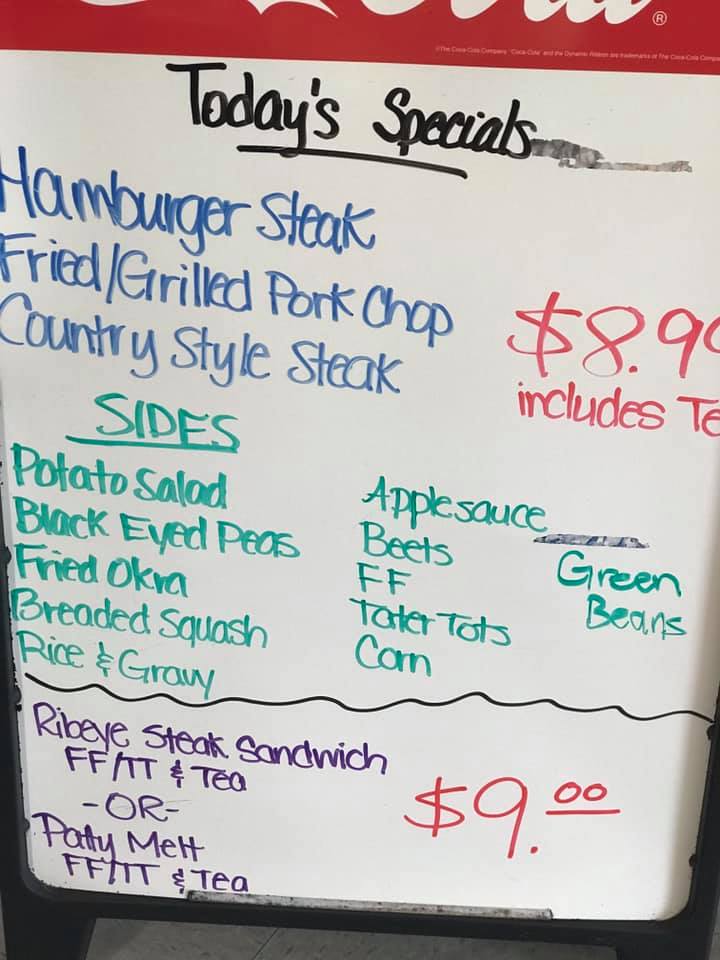 ®
©The Coca-Cola Company. "Coca-Cola" and the Dynamic Ribbon are trademarks of The Coca-Cola
Today's Specials
Hamburger Steak
Fried/Grilled Pork Chop
Country Style Steak
$8.99
includes Te
SIDES
Potato Salad
Black Eyed Peas
Fried Okra
Breaded Squash
Rice & Gravy
Applesauce
Beets
FF
Tater Tots
Corn
Green
Beans
Ribeye Steak Sandwich
FF/TT & Tea
-OR-
Patty Melt
FF/TT & Tea
$9.00